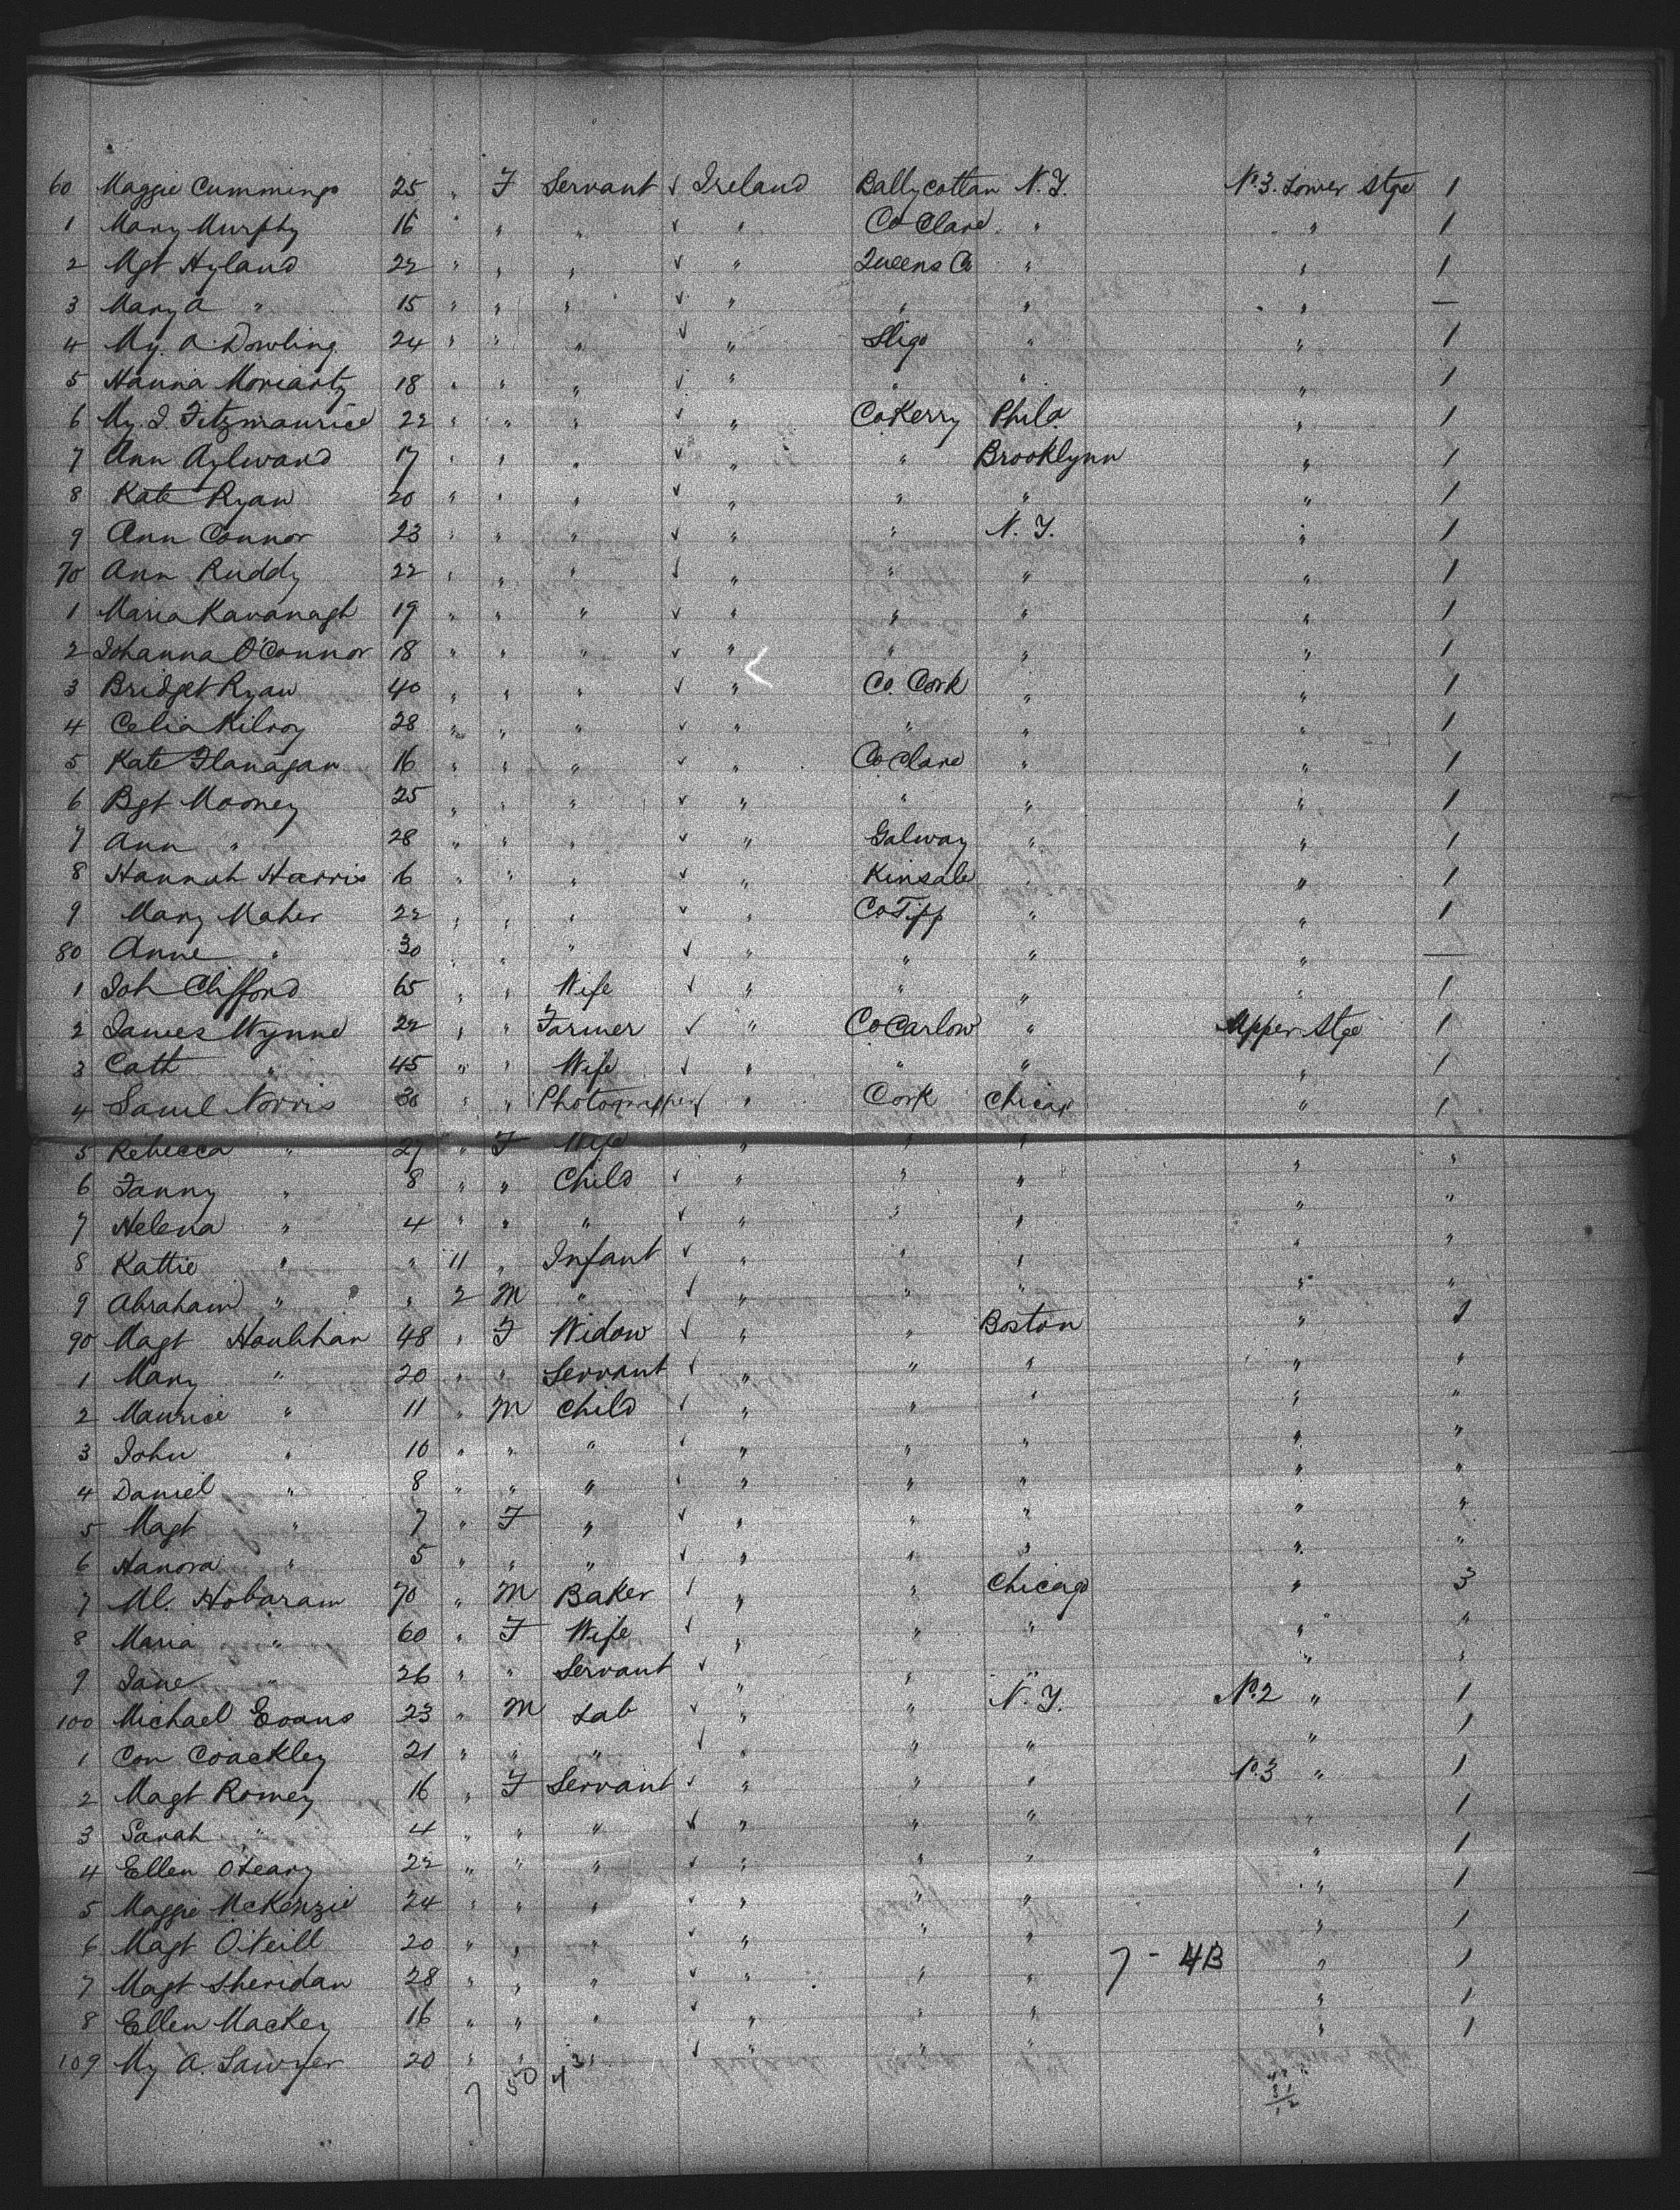 60 Maggie Cummings 25 " F Servant ✓ Ireland Ballycottan N.Y. No. 3. Lower Stge 1
1 Mary Murphy 16 " " " ✓ " Co Clare " " 1
2 Mgt Hyland 22 " " " ✓ " Queens Co " " 1
3 Mary A " 15 " " " ✓ " " " " —
4 My. A. Dowling 24 " " " ✓ " Sligo " " 1
5 Hanna Moriarty 18 " " " ✓ " " " " 1
6 My. J. Fitzmaurice 22 " " " ✓ " Co Kerry Phila. " 1
7 Ann Aylward 17 " " " ✓ " " Brooklynn " 1
8 Kate Ryan 20 " " " ✓ " " " " 1
9 Ann Connor 23 " " " ✓ " " N.Y. " 1
70 Ann Ruddy 22 " " " ✓ " " " " 1
1 Maria Kavanagh 19 " " " ✓ " " " " 1
2 Johanna O'Connor 18 " " " ✓ " " " " 1
3 Bridget Ryan 40 " " " ✓ " Co. Cork " " 1
4 Celia Kilroy 28 " " " ✓ " " " " 1
5 Kate Flanagan 16 " " " ✓ " Co Clare " " 1
6 Bgt Mooney 25 " " " ✓ " " " " 1
7 Ann " 28 " " " ✓ " Galway " " 1
8 Hannah Harris 16 " " " ✓ " Kinsale " " 1
9 Mary Maher 22 " " " ✓ " Co Tipp " " 1
80 Anne " 30 " " " ✓ " " " " —
1 Joh Clifford 65 " " Wife ✓ " " " " 1
2 James Wynne 22 " " Farmer ✓ " Co Carlow " Upper Stge 1
3 Cath " 45 " " Wife ✓ " " " " 1
4 Saml Norris 30 " " Photographer ✓ " Cork Chicag " 1
5 Rebecca " 27 " F Wife " " " " "
6 Fanny " 8 " " Child ✓ " " " " "
7 Helena " 4 " " " ✓ " " " " "
8 Kattie " " 11 " Infant ✓ " " " " "
9 Abraham " " 2 M " ✓ " " " " "
90 Magt Houlihan 48 " F Widow ✓ " " Boston " 1
1 Mary " 20 " " Servant ✓ " " " " "
2 Maurice " 11 " M Child ✓ " " " " "
3 John " 10 " " " ✓ " " " " "
4 Daniel " 8 " " " ✓ " " " " "
5 Magt " 7 " F " ✓ " " " " "
6 Hanora " 5 " " " ✓ " " " " "
7 Ml. Hobaram 70 " M Baker ✓ " " Chicago " 3
8 Maria " 60 " F Wife ✓ " " " " "
9 Jane " 26 " " Servant ✓ " " " " "
100 Michael Evans 23 " M Lab ✓ " " N.Y. No. 2 " 1
1 Con Coackley 21 " " " ✓ " " " " 1
2 Magt Romey 16 " F Servant ✓ " " " No. 3 " 1
3 Sarah " 4 " " " ✓ " " " " 1
4 Ellen O'Leary 22 " " " ✓ " " " " 1
5 Maggie McKenzie 24 " " " ✓ " " " " 1
6 Magt O'Neill 20 " " " ✓ " " " " 1
7 Magt Sheridan 28 " " " ✓ " " " 7 - 4B " 1
8 Ellen Mackey 16 " " " ✓ " " " " 1
109 My A. Sawyer 20 " " " ✓ " " " " 1
7 50 43